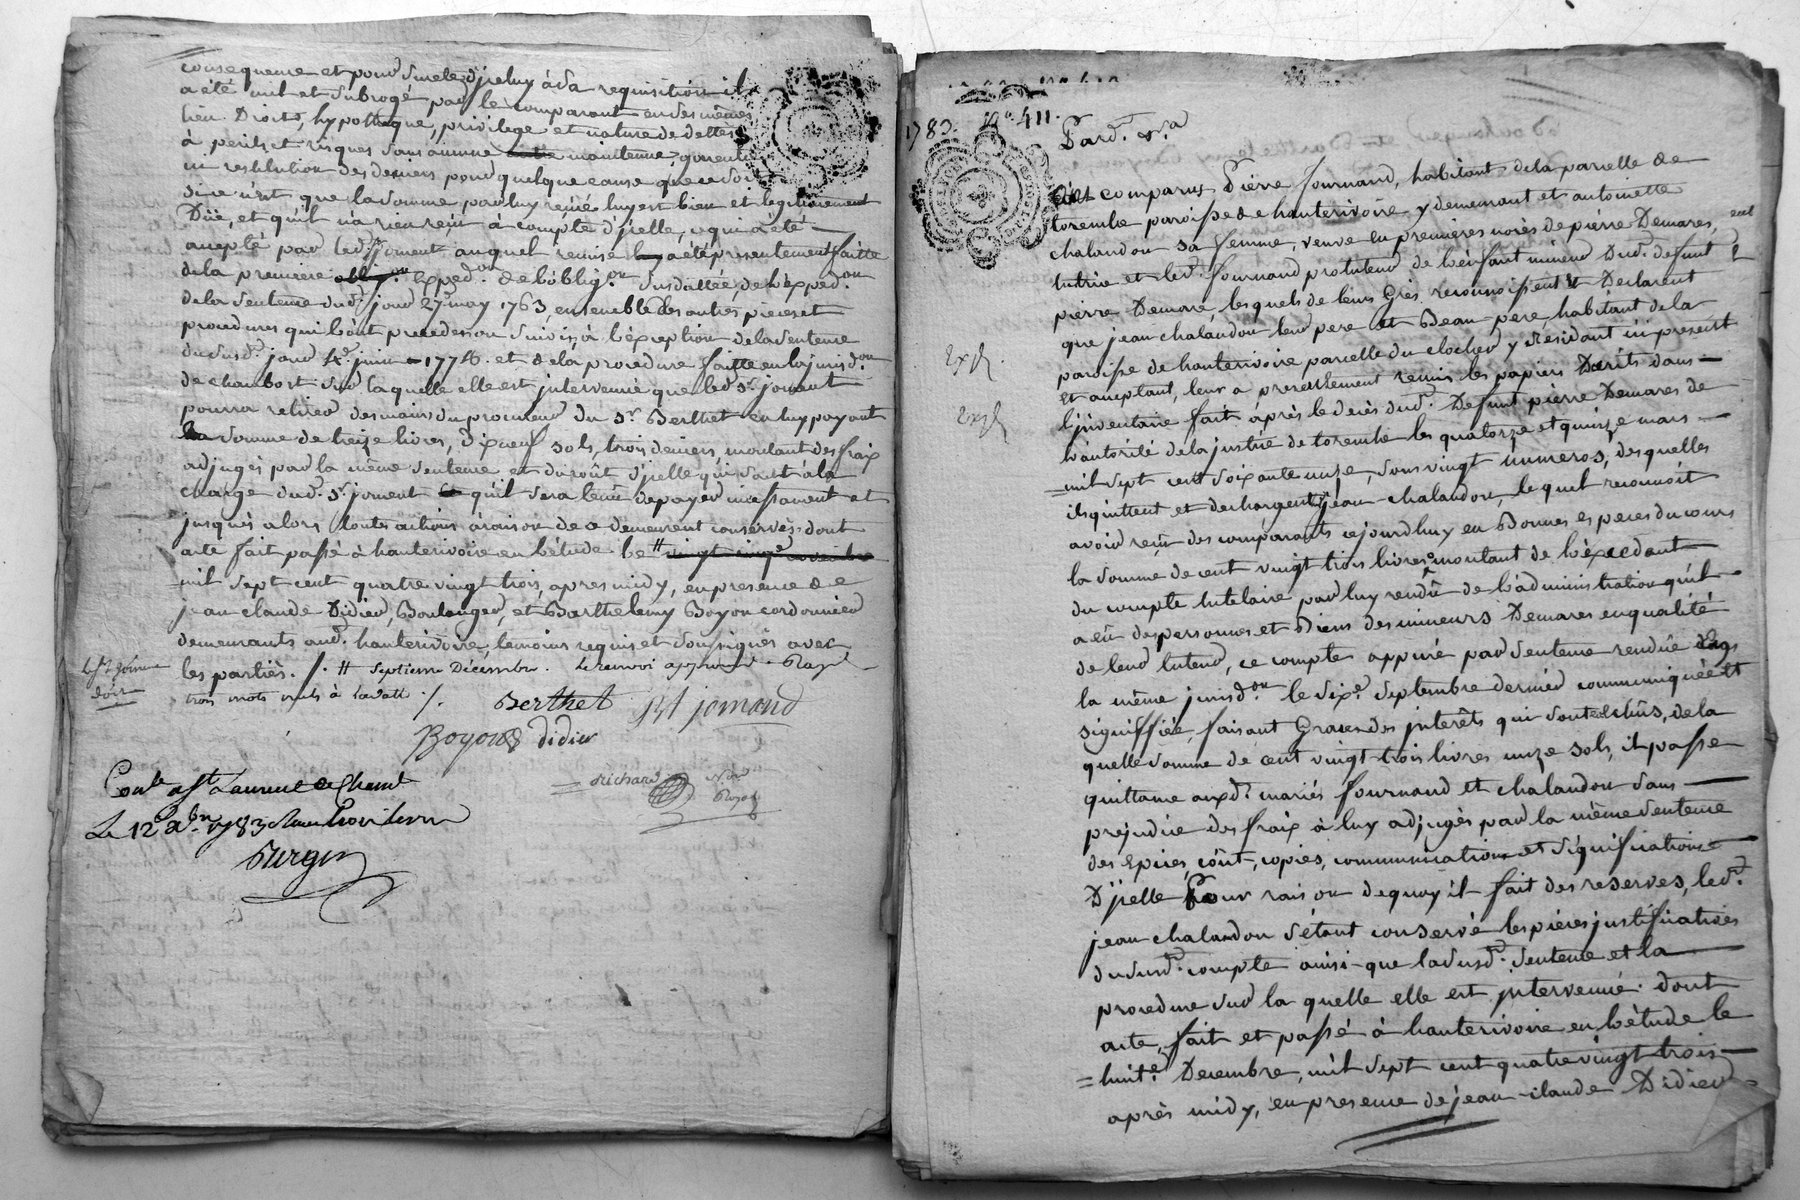 consequence et pour sureté d'iceluy à sa requisition il
a été mis et subrogé par le comparant en ses mêmes
lieu Droits, hypotheque, privilege et nature de dettes
à perils et risques sans aucune maintenue, garentie
ni restitution des deniers pour quelque cause que ce soit
si ce n'est que la somme par luy reçüe luy est bien et legitimement
Düe, et qu'il n'a rien reçu à compte d'jcelle, ce qui a été
accepté par led. Sr joment auquel remise a été presentement faitte
de la premiere Exped.on de l'oblig.on susdattée, de l'exped.on
de la sentence dud. jour 27 may 1763, ensemble des autres pieces et
procedures qui l'ont precedés ou suivis, à l'exception de la sentence
du susd. jour 4e juin 1774. et de la procedure faitte en la jurisd.on
de chambost sur laquelle elle est intervenüe que led. Sr joment
pourra retirer des mains du procureur du Sr Berthet en luy payant
la somme de treize livres, dixneuf sols, trois deniers, montant des fraix
adjugés par la même sentence et du coût d'jcelle qui sont à la
charge dud. Sr joment qu'il sera tenu de payer incessament et
jusqu'à alors toutes actions à raison de ce demeurent conservés, dont
acte fait passé à hauterivoire en l'étude le # vingt cinqe novembre
mil sept cent quatre vingt trois, apres midy, en presence de
jean claude Didier, Boulanger, et Barthelemy Boyon cordonnier
demeurants aud. hauterivoire, temoins requis et soussignés avec
les parties. /. # Septieme Décembre. Le renvoi approuvé. Rayé
trois mots nuls à la datte /.
Berthet J joment
Boyon didier
Richard Nre Royal
Conlé a St Laurent de Chamt
Le 12 Xbre 1783
1783. No. 411.
Pard.t N.a
Est comparus Pierre fournand, habitant de la parcelle de
toranche paroisse de hauterivoire y demeurant et antoinette
chalandon sa femme, veuve en premieres noces de pierre Demares,
tutrice et led. fournand protuteur de l'enfant mineur Dud. defunt
pierre Demare, lesquels de leurs Grés reconnoissent et Declarent
que jean chalandon leur pere et Beau-pere, habitant de la
paroisse de hauterivoire parcelle du clocher y residant ici present
et acceptant, leur a presentement remis les papiers Decrits dans
l'jnventaire fait après le decès dud. Defunt pierre Demares de
l'autorité de la justice de toranche les quatorze et quinze mars
mil sept cent soixante unze, sous vingt numeros, desquelles
ils quittent et dechargent led. jean chalandon, lequel reconnoit
avoir reçu des comparants cejourdhuy en Bonnes especes du cours
la somme de cent vingt trois livres montant de l'éxcedant
du compte tutelaire par luy rendu de l'administration qu'il
a eu des personnes et Biens des mineurs Demares en qualité
de leur tuteur, ce compte appuré par sentence rendüe en
la même jurisd.on le sixe septembre dernier communiquée et
signiffiée, faisant Grace des jnterêts qui sont échûs, de la
quelle somme de cent vingt trois livres unze sols, il passe
quittance auxd. mariés fournand et chalandon sans
prejudice des fraix à luy adjugés par la même sentence
des Epices, côût, copies, communication et signification
D'jcelle Pour raison de quoy il fait des reserves, led.
jean chalandon s'étant conservé les pieces justificatives
du susd. compte ainsi que la susd. sentence et la
procedure sur la quelle elle est jntervenüe. dont
acte, fait et passé à hauterivoire en l'étude le
huite Decembre, mil sept cent quatre vingt trois
après midy, en presence de jean-claude Didier